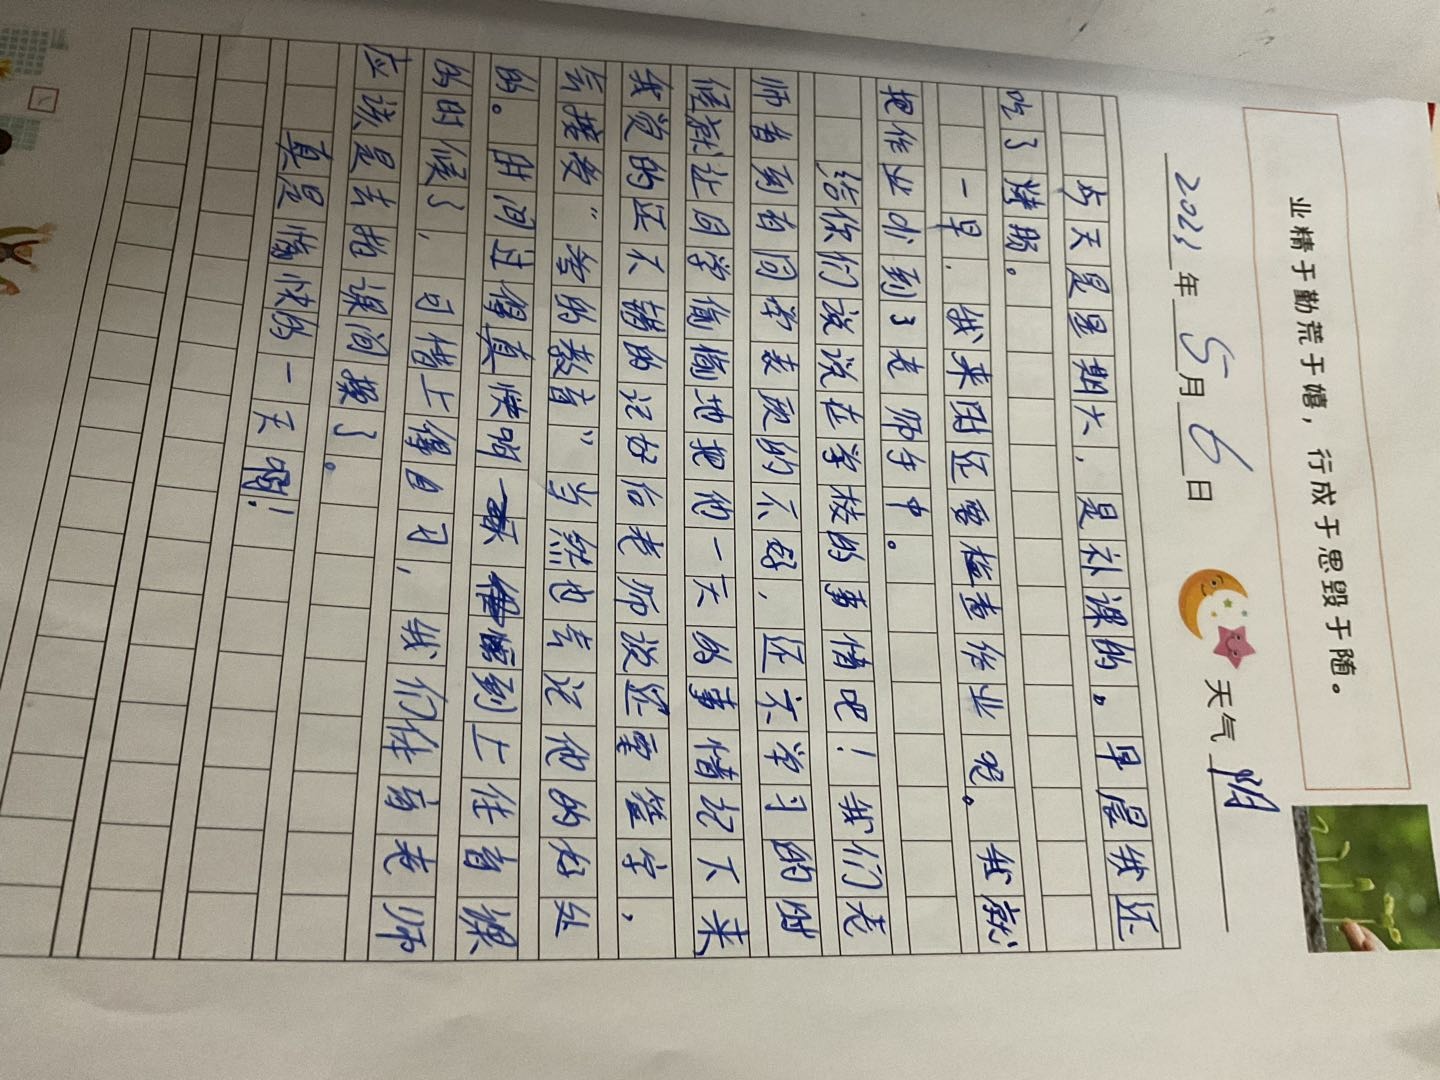 业精于勤荒于嬉，行成于思毁于随。
2023年5月6日 天气 阴
今天是星期六，是补课的。早晨我还
吃了烤肠。
一早，我来时还要检查作业呢。我就
把作业小到了老师手中。
给你们说说在学校的事情吧！我们老
师看到有同学表现的不好，还不学习的时
候就让同学偷偷地把他一天的事情记下来
我觉的还不错的记好给老师说还要签字，
会接教“爸的教育”当然也会说他的好处
的。时间过得真快啊 到上体育课
的时候了，可惜上得自习，我们体育老师
应该是去拍课间操了。
真是愉快的一天啊！